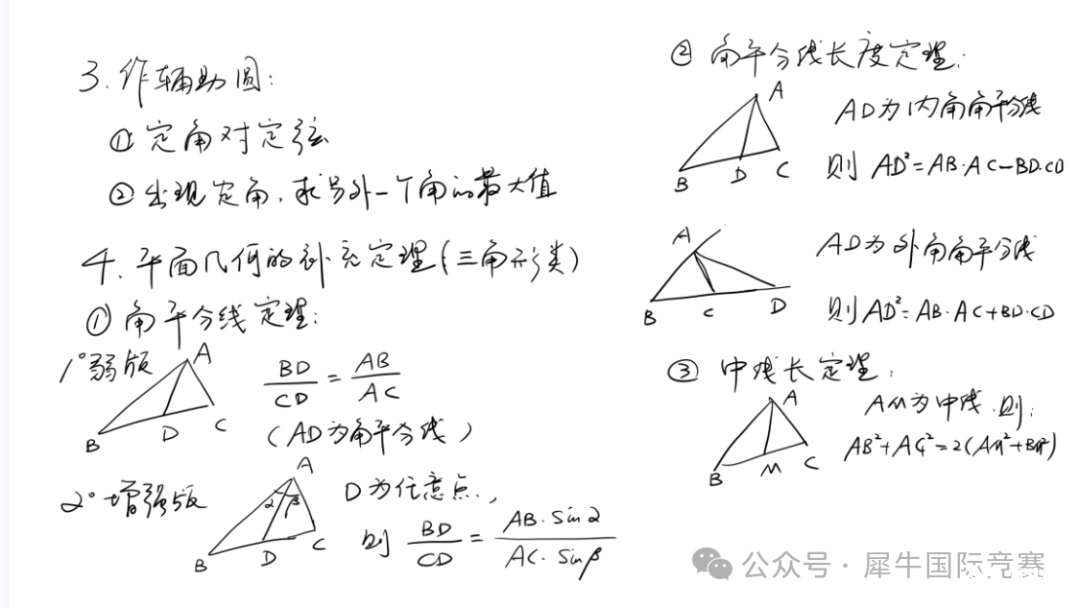 3. 作辅助圆:
① 定角对定弦
② 出现定角,求另外一个角的最大值
4. 平面几何的补充定理(三角形类)
① 角平分线定理:
1° 弱版
A
B
D
C
BD/CD = AB/AC
(AD为角平分线)
2° 增强版
A
α β
B
D
C
D为任意点,
则 BD/CD = AB·Sinα/AC·Sinβ
② 角平分线长度定理:
A
B
D
C
AD为内角角平分线
则 AD²=AB·AC-BD·CD
A
B
C
D
AD为外角角平分线
则AD²=AB·AC+BD·CD
③ 中线长定理:
A
B
M
C
AM为中线,则:
AB²+AC²=2(AM²+BM²)
公众号·犀牛国际竞赛